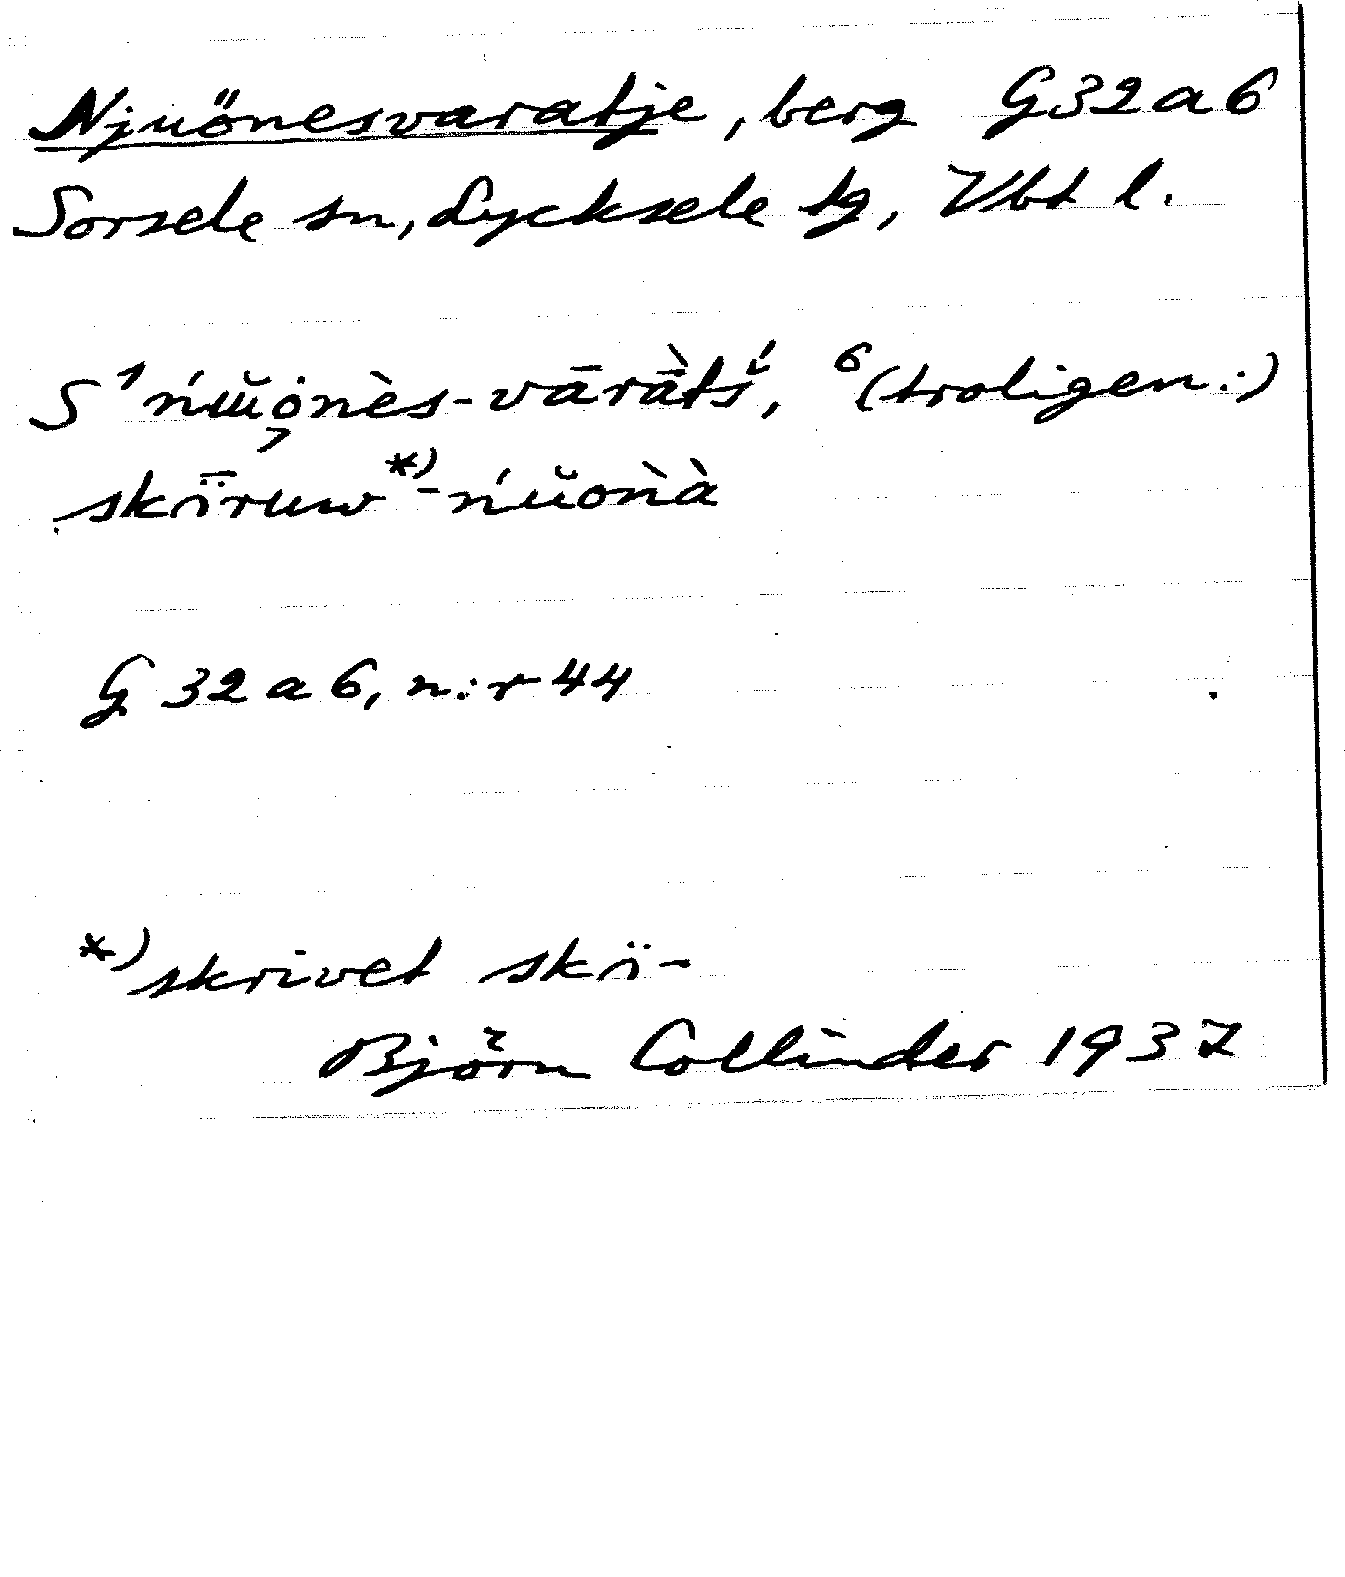 Njuönesvaratje, berg G32a6
Sorsele sn, Lycksele tg, Vbt l.
S ¹ńɯ̆ǫ̇nès-vārā̀tš́, ⁶(troligen:)
skī̈ruw*)-ńŭoǹà
G 32 a 6, n:r 44
*) skrivet skï-
Björn Collinder 1937